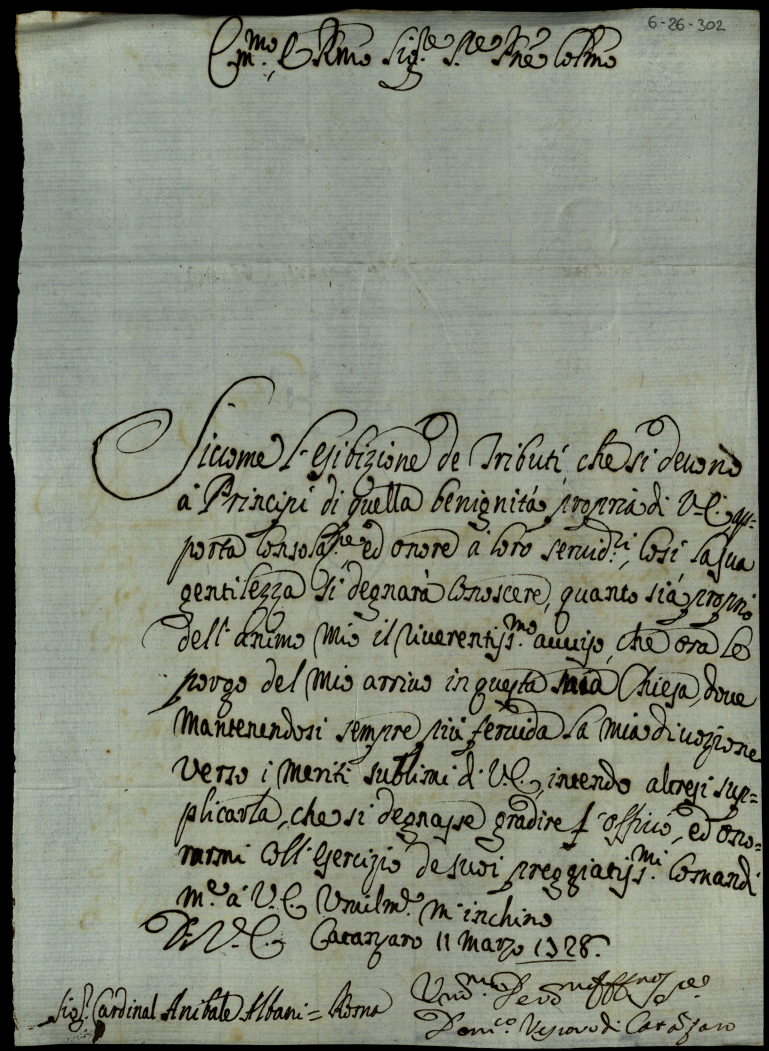 6-26-302
Em.mo, e Rmo Sig.re S.re Pne Colmo
Siccome l'esibizione de Tributi, che si devono
a' Principi di quella benignità propria di V. E. ap=
porta consolaz.ne ed onore a loro servid.ri, così la sua
gentilezza si degnarà conoscere, quanto sia proprio
dell'animo mio il riverentiss.mo avviso, che ora le
porgo del mio arrivo in questa mia Chiesa, dove
mantenendosi sempre più fervida la mia divozione
verso i meriti sublimi di V. E., intendo altresi sup=
plicarla, che si degnasse gradire l'officio, ed ono=
rarmi coll'esercizio de suoi preggiatiss.mi comandi
m.e à V. E. Umilm.e m'inchino
Di V. E. Catanzaro 11 Marzo 1728.
Sig.r Cardinal Anibale Albani = Roma
Um.mo Dev.mo
Dom.co Vescovo di Catãzaro